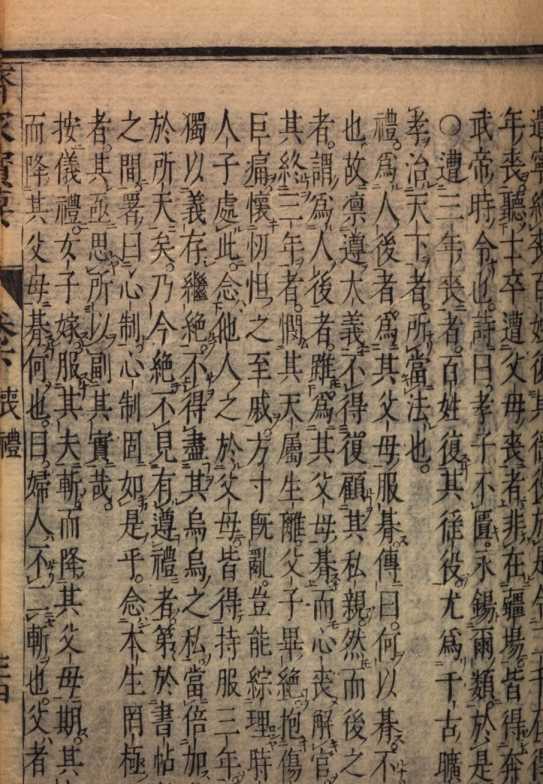 年喪聽士卒遭父母喪者非在疆場皆得奔
武帝時令也詩曰孝子不匱永錫爾類於是
〇遭三年喪者百姓復其徭役尤為千古曠
孝治天下者所當法也。
禮。為人後者為其父母服朞傳曰。何以朞不
也故凛遵大義不得復顧其私親然而後之
者。謂為人後者雖為其父母朞而心喪解官
其終三年者。憫其天屬生離父子畢絕抱傷
巨痛。懷忉怛之至戚方寸既亂豈能綜理時
人子處此。念他人之於父母皆得持服三年
獨以義存繼絕不得盡其烏烏之私當倍加
於所天矣。乃今絕不見有遵禮者第於書帖
之間署曰心制心制固如是乎。念本生罔極
者。其亟思所以副其實哉。
按儀禮女子嫁服其夫斬而降其父母期。其
而降其父母朞何也。曰婦人不二斬也父者
齊家寶要 卷下 喪禮